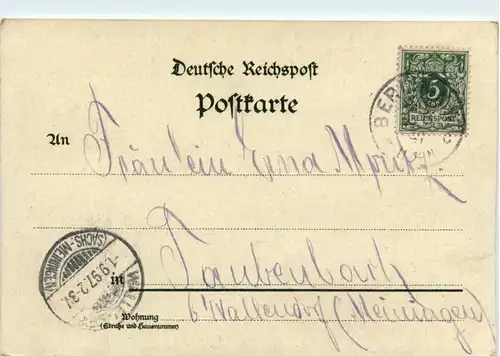 Deutsche Reichspost
Postkarte
5
REICHSPOST
BER
An
Fräulein Erna
in
Taubenbach
b/ Wallendorf (Meiningen)
Wohnung
(Straße und Hausnummer)
(SACHS.-MEININGEN)
1.9.97.2-3N